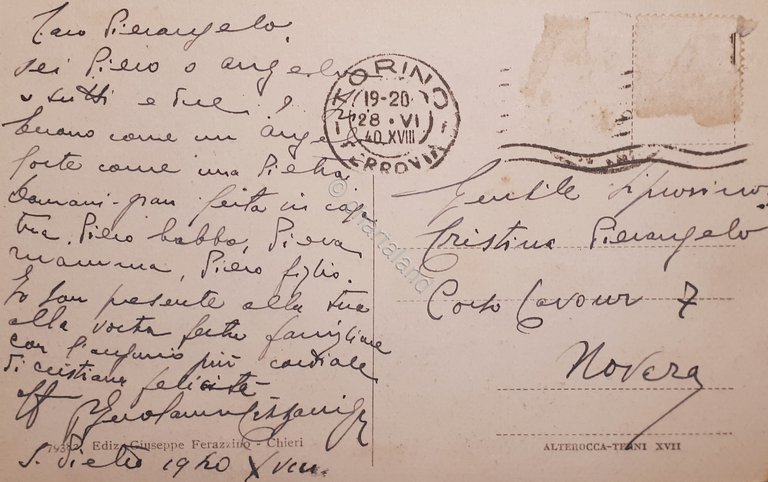 Caro Pierangelo,
sei Piero o angelo
o tutti e due?
buono come un angelo
forte come una Pietra,
Domani gran festa in casa
tua, Piero babbo, Piera
mamma, Piero figlio.
Io son presente alla tua
alla vostra festa famigliare
con l'augurio più cordiale
di cristiana felicità
aff
S. Pietro 1940 XVIII
79393 Ediz. Giuseppe Ferazzino - Chieri
TORINO
19-20
28 · VI
40. XVIII
FERROVIA
Gentile
Cristina Pierangelo
Corso Cavour 7
Novara
ALTEROCCA-TERNI XVII
© cartarialand